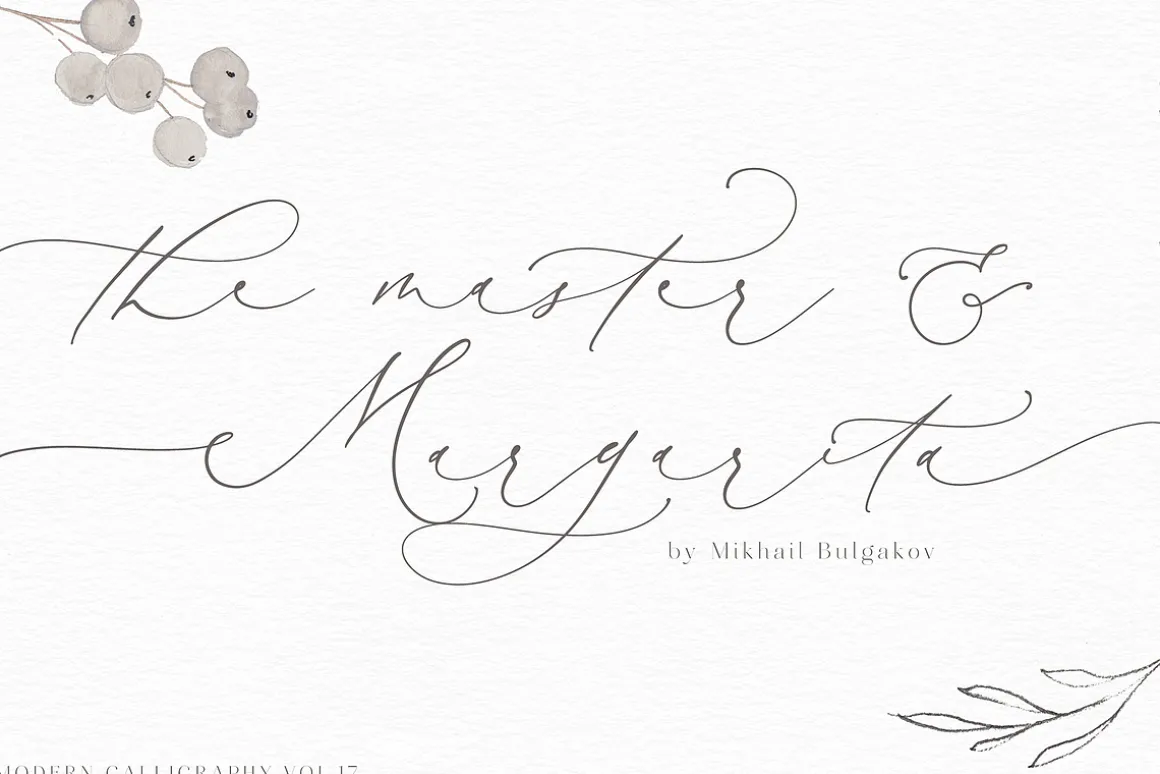 the master &
Margarita
by Mikhail Bulgakov
MODERN CALLIGRAPHY VOL 17